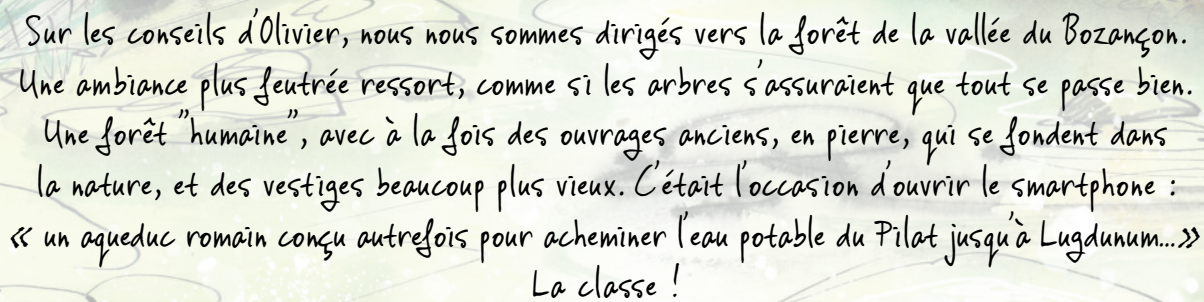 Sur les conseils d'Olivier, nous nous sommes dirigés vers la forêt de la vallée du Bozançon.
Une ambiance plus feutrée ressort, comme si les arbres s'assuraient que tout se passe bien.
Une forêt "humaine", avec à la fois des ouvrages anciens, en pierre, qui se fondent dans
la nature, et des vestiges beaucoup plus vieux. C'était l'occasion d'ouvrir le smartphone :
« un aqueduc romain conçu autrefois pour acheminer l'eau potable du Pilat jusqu'à Lugdunum...»
La classe !